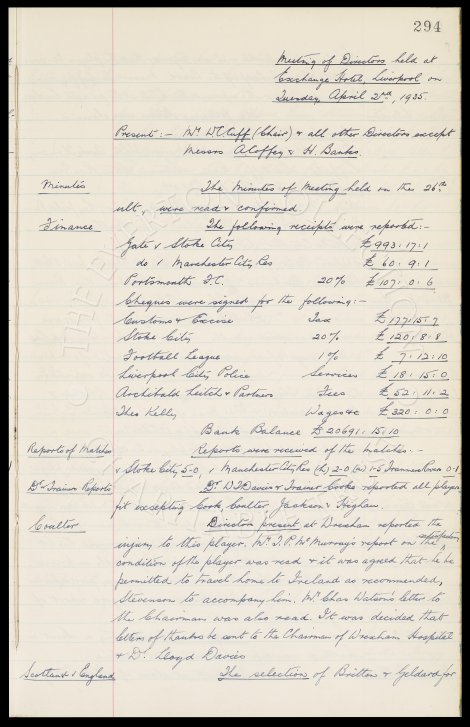 294
Meeting of Directors held at
Exchange Hotel, Liverpool on
Tuesday April 2nd, 1935.
Present:- Mr W C Cuff (Chair) & all other Directors except
Messrs A Coffey & H. Banks.
Minutes The Minutes of Meeting held on the 26th
ult, were read & confirmed
Finance The following receipts were reported:-
Gate v Stoke City £993.17.1
do v Manchester City Res £60.9.1
Portsmouth F.C. 20% £107.0.6
Cheques were signed for the following:-
Customs & Excise Tax £177.15.7
Stoke City 20% £120.8.8
Football League 1% £7.12.10
Liverpool City Police Services £18.15.0
Archibald Leitch & Partners Fees £52.11.2
Theo Kelly Wages &c £320.0.0
Bank Balance £20691.15.10
Reports of Matches Reports were received of the matches:-
v Stoke City 5-0, v Manchester City Res (h) 2-0 (a) 1-5 Tranmere Rovers 0-1
Dr & Trainers Reports Dr. W D Davies & Trainer Cooke reported all players
fit excepting Cook, Coulter, Jackson & Higham.
Coulter Directors present at Wrexham reported the
injury to this player. Mr. T. P. McMurray's report on the
condition of the player was read & it was agreed that he be
permitted to travel home to Ireland as recommended,
Stevenson to accompany him. Mr Chas Watson's letter to
the Chairman was also read. It was decided that
letters of thanks be sent to the Chairman of Wrexham Hospital
& Dr. Lloyd Davies
Scotland v England The selection of Britton & Geldard for